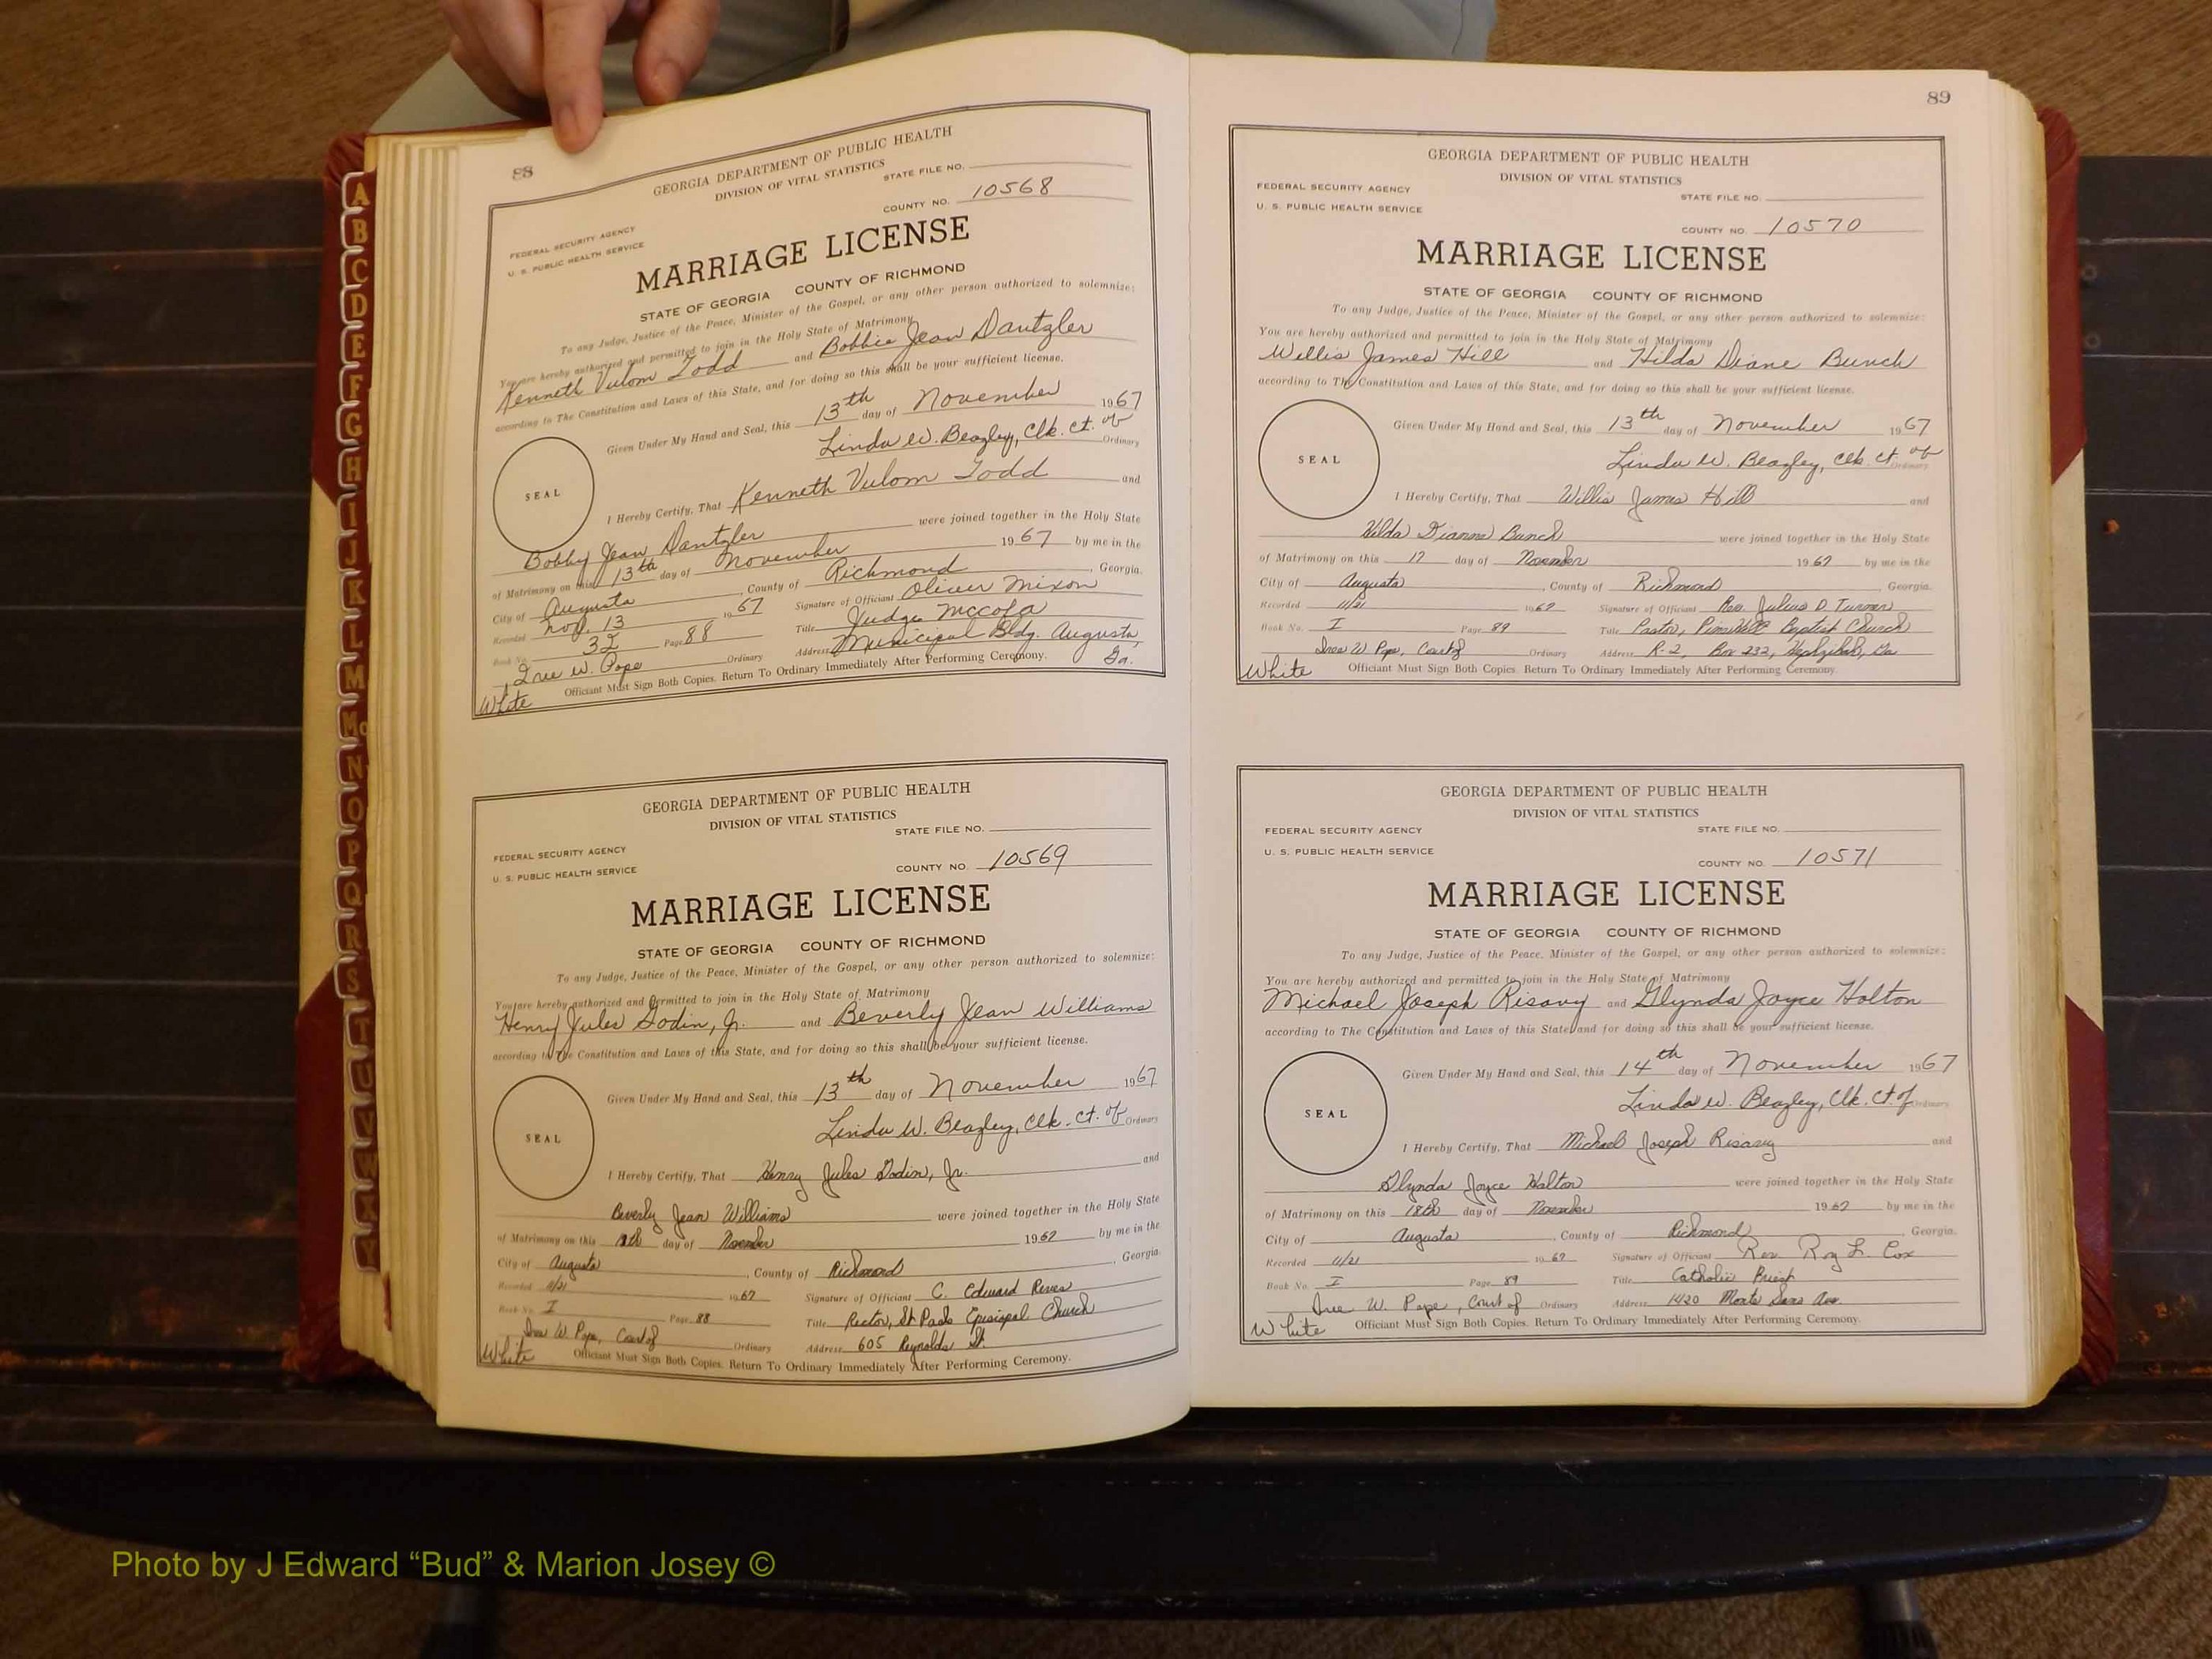 88
GEORGIA DEPARTMENT OF PUBLIC HEALTH
DIVISION OF VITAL STATISTICS
STATE FILE NO.
COUNTY NO. 10568
FEDERAL SECURITY AGENCY
U. S. PUBLIC HEALTH SERVICE
MARRIAGE LICENSE
STATE OF GEORGIA COUNTY OF RICHMOND
To any Judge, Justice of the Peace, Minister of the Gospel, or any other person authorized to solemnize:
You are hereby authorized and permitted to join in the Holy State of Matrimony
Kenneth Vulom Todd and Bobbie Jean Dantzler
according to The Constitution and Laws of this State, and for doing so this shall be your sufficient license.
Given Under My Hand and Seal, this 13th day of November 1967
Linda W. Beazley, Clk. Ct. of Ordinary
SEAL
I Hereby Certify, That Kenneth Vulom Todd and
Bobby Jean Dantzler were joined together in the Holy State
of Matrimony on this 13th day of November 1967 by me in the
City of Augusta, County of Richmond, Georgia.
Recorded Nov. 13 1967 Signature of Officiant Oliver Mixon
Book No. 3I Page 88 Title Judge
Ordinary Address Municipal Bldg. Augusta, Ga.
White Officiant Must Sign Both Copies. Return To Ordinary Immediately After Performing Ceremony.
GEORGIA DEPARTMENT OF PUBLIC HEALTH
DIVISION OF VITAL STATISTICS
STATE FILE NO.
FEDERAL SECURITY AGENCY
U. S. PUBLIC HEALTH SERVICE
COUNTY NO. 10569
MARRIAGE LICENSE
STATE OF GEORGIA COUNTY OF RICHMOND
To any Judge, Justice of the Peace, Minister of the Gospel, or any other person authorized to solemnize:
You are hereby authorized and permitted to join in the Holy State of Matrimony
Henry Jules Godin, Jr. and Beverly Jean Williams
according to The Constitution and Laws of this State, and for doing so this shall be your sufficient license.
Given Under My Hand and Seal, this 13th day of November 1967
Linda W. Beazley, Clk. Ct. of Ordinary
SEAL
I Hereby Certify, That Henry Jules Godin, Jr. and
Beverly Jean Williams were joined together in the Holy State
of Matrimony on this day of November 1967 by me in the
City of Augusta, County of Richmond, Georgia.
Recorded 11/21 1967 Signature of Officiant C. Edward Reeves
Book No. I Page 88 Title Rector, St Pauls Episcopal Church
W. Pope, Court of Ordinary Address 605 Reynolds St.
White Officiant Must Sign Both Copies. Return To Ordinary Immediately After Performing Ceremony.
89
GEORGIA DEPARTMENT OF PUBLIC HEALTH
DIVISION OF VITAL STATISTICS
FEDERAL SECURITY AGENCY
STATE FILE NO.
U. S. PUBLIC HEALTH SERVICE
COUNTY NO. 10570
MARRIAGE LICENSE
STATE OF GEORGIA COUNTY OF RICHMOND
To any Judge, Justice of the Peace, Minister of the Gospel, or any other person authorized to solemnize:
You are hereby authorized and permitted to join in the Holy State of Matrimony
Willis James Hill and Hilda Diane Bunch
according to The Constitution and Laws of this State, and for doing so this shall be your sufficient license.
Given Under My Hand and Seal, this 13th day of November 1967
Linda W. Beazley, Clk. Ct. of Ordinary
SEAL
I Hereby Certify, That Willis James Hill and
Hilda Dianne Bunch were joined together in the Holy State
of Matrimony on this 17 day of November 1967 by me in the
City of Augusta, County of Richmond, Georgia.
Recorded 11/21 1967 Signature of Officiant Rev. Julius D. Turner
Book No. I Page 89 Title Pastor, Baptist Church
W. Pope, Court of Ordinary Address R-2, Box 232, Hephzibah, Ga
White Officiant Must Sign Both Copies. Return To Ordinary Immediately After Performing Ceremony.
GEORGIA DEPARTMENT OF PUBLIC HEALTH
DIVISION OF VITAL STATISTICS
FEDERAL SECURITY AGENCY
STATE FILE NO.
U. S. PUBLIC HEALTH SERVICE
COUNTY NO. 10571
MARRIAGE LICENSE
STATE OF GEORGIA COUNTY OF RICHMOND
To any Judge, Justice of the Peace, Minister of the Gospel, or any other person authorized to solemnize:
You are hereby authorized and permitted to join in the Holy State of Matrimony
Michael Joseph Risavy and Glynda Joyce Holton
according to The Constitution and Laws of this State, and for doing so this shall be your sufficient license.
Given Under My Hand and Seal, this 14th day of November 1967
Linda W. Beazley, Clk. Ct. of Ordinary
SEAL
I Hereby Certify, That Michael Joseph Risavy and
Glynda Joyce Holton were joined together in the Holy State
of Matrimony on this 18th day of November 1967 by me in the
City of Augusta, County of Richmond, Georgia.
Recorded 11/21 1967 Signature of Officiant Rev. Roy L. Cox
Book No. I Page 89 Title Catholic Priest
W. Pope, Court of Ordinary Address 1420 Monte Sano Ave.
White Officiant Must Sign Both Copies. Return To Ordinary Immediately After Performing Ceremony.
A
B
C
D
E
F
G
H
I
J
K
L
M
Mc
N
O
P
Q
R
S
T
U
V
W
X
Y
Photo by J Edward “Bud” & Marion Josey ©